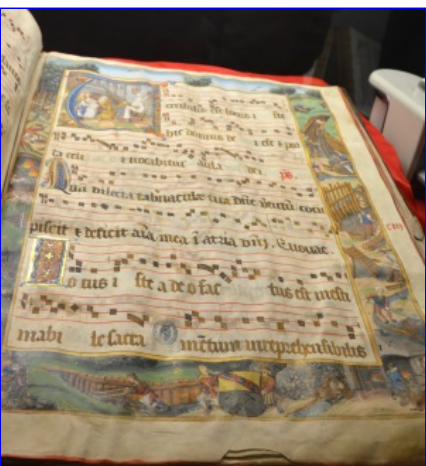 erribilis est locus i ste
hic domus de i est z por
ta celi z vocabitur aula dei ps
Qua dilecta tabernacula tua dñe virtutū cōcu
piscit z deficit aīa mea ī atria dñi. Euouae.
Locus i ste a deo fac tus est inesti
mabi le sacra mētum irreprehensibilis